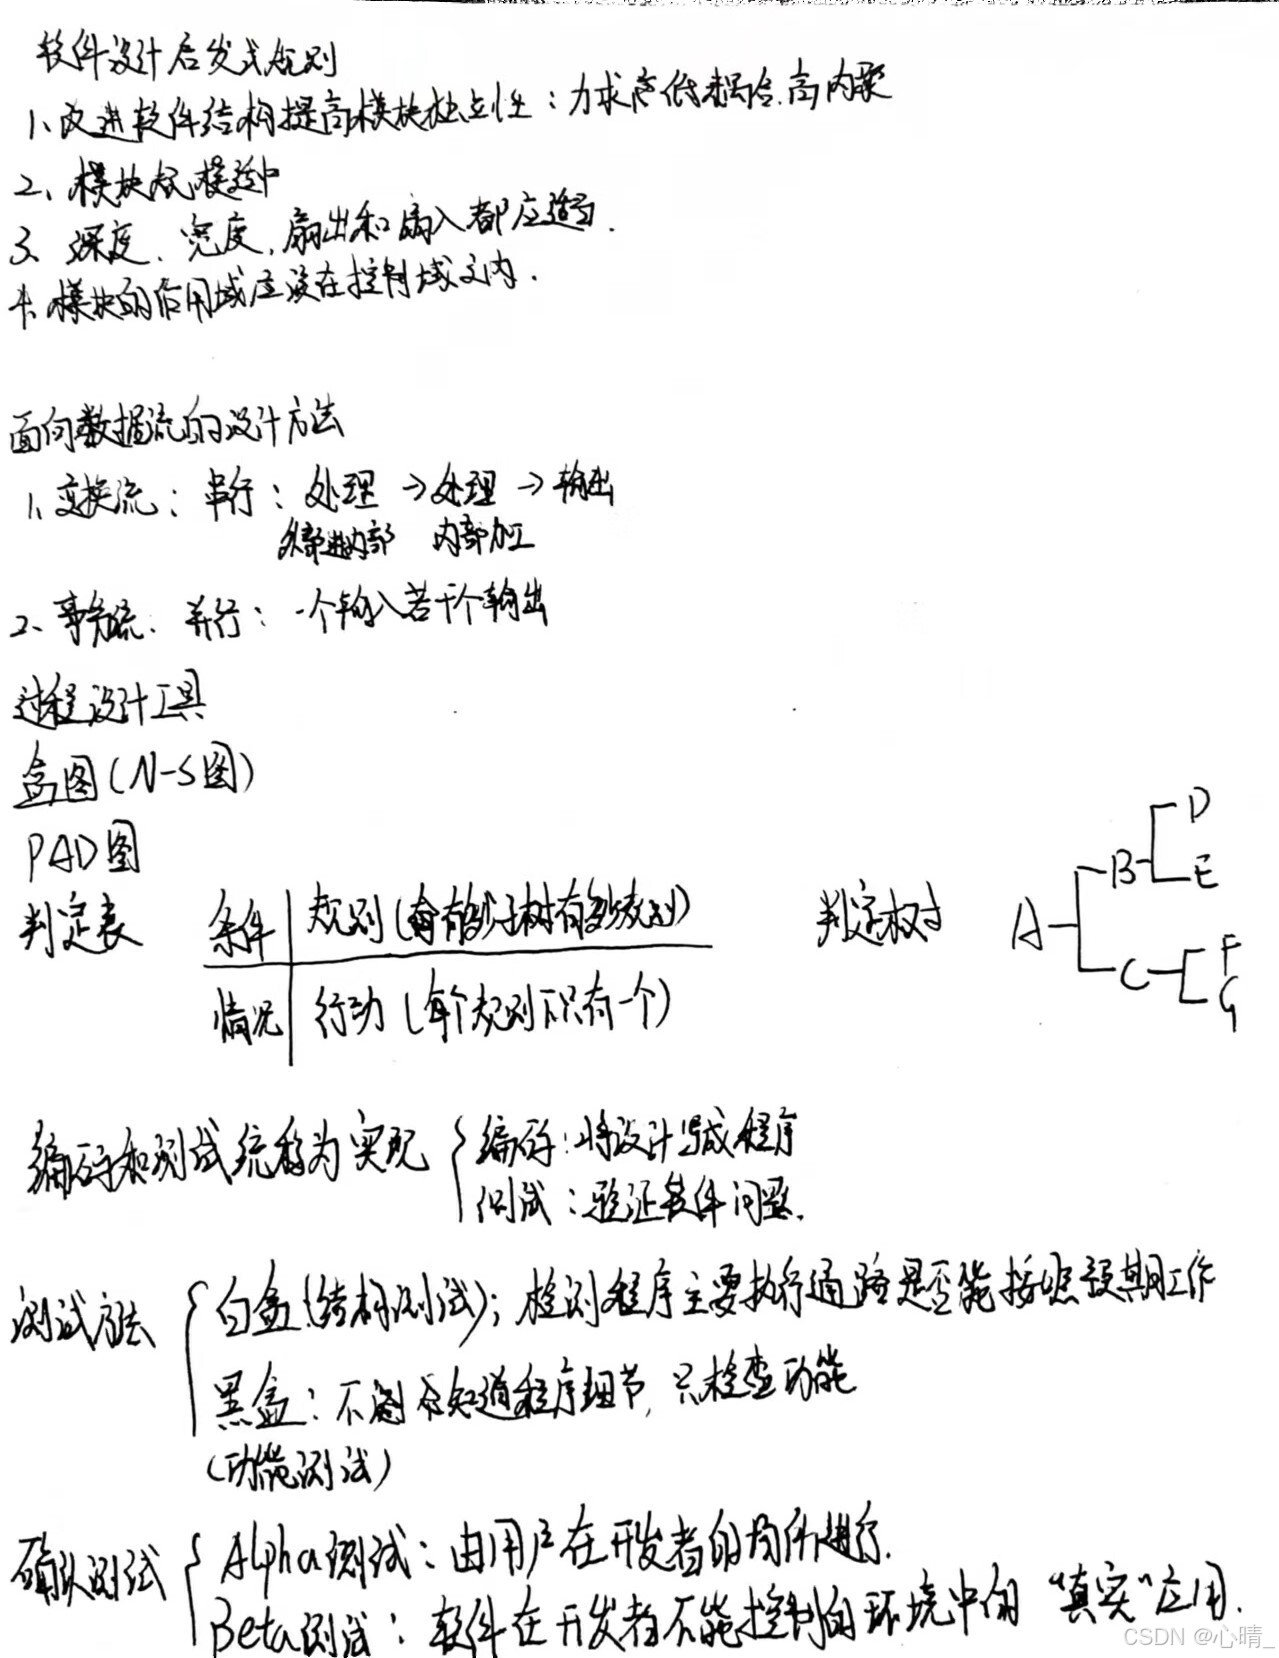 软件设计启发式规则
1、改进软件结构提高模块独立性：力求降低耦合.高内聚
2、模块规模适中
3、深度、宽度,扇出和扇入都应适当.
4、模块的作用域应该在控制域之内.
面向数据流的设计方法
1、变换流：串行：处理→处理→输出
外部进内部 内部加工
2、事务流、并行：一个输入若干个输出
过程设计工具
盒图(N-S图)
PAD图
判定表 条件 规则(有多少子树有多少规则) 判定树
情况 行动(每个规则下只有一个)
A B C D E F G
编码和测试统称为实现
编码：将设计写成程序
测试：验证软件问题.
测试方法
白盒(结构测试)；检测程序主要执行通路是否能按照预期工作
黑盒：不需知道程序细节,只检查功能
(功能测试)
确认测试
Alpha测试：由用户在开发者的场所进行.
Beta测试：软件在开发者不能控制的环境中的"真实"应用.
CSDN @心晴_